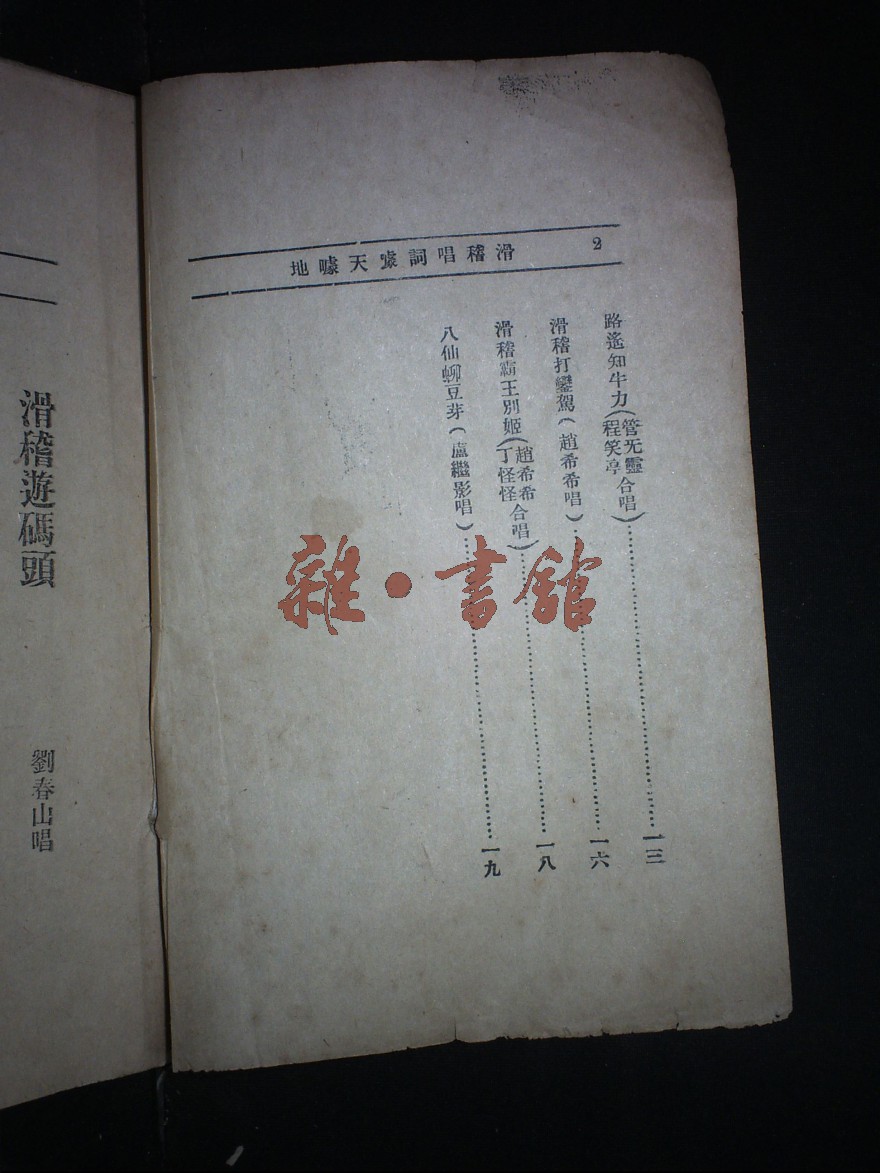 2
滑稽唱詞噱天噱地
路遙知牛力(管无靈程笑亭合唱)……一三
滑稽打鑾駕(趙希希唱)……一六
滑稽霸王別姬(趙希希丁怪怪合唱)……一八
八仙蜘豆芽(盧繼影唱)……一九
滑稽遊碼頭
劉春山唱
雜·書館